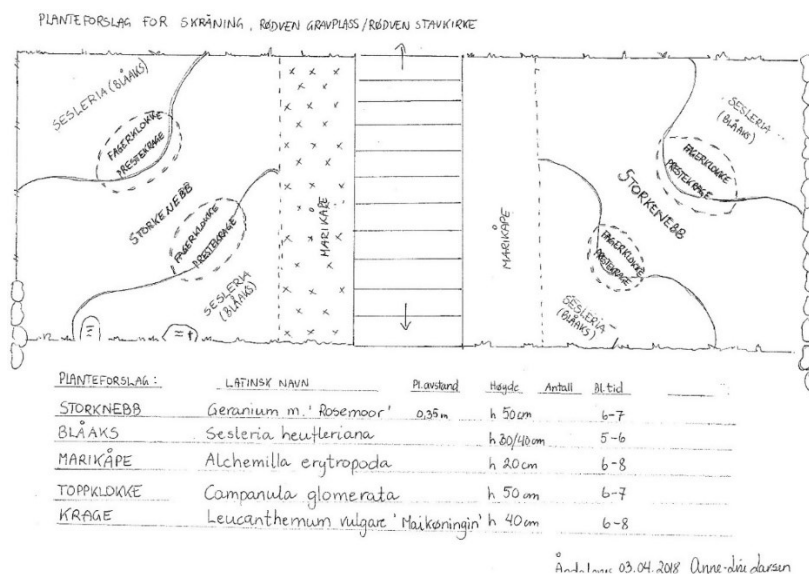 PLANTEFORSLAG FOR SKRÅNING, RØDVEN GRAVPLASS/RØDVEN STAVKIRKE
SESLERIA (BLÅAKS)
FAGERKLOKKE
PRESTEKRAGE
STORKENEBB
FAGERKLOKKE
PRESTEKRAGE
SESLERIA
(BLÅAKS)
MARIKÅPE
MARIKÅPE
SESLERIA
(BLÅAKS)
FAGERKLOKKE
PRESTEKRAGE
STORKENEBB
FAGERKLOKKE
PRESTEKRAGE
SESLERIA
(BLÅAKS)
PLANTEFORSLAG: LATINSK NAVN Pl.avstand Høyde Antall Bl.tid
STORKNEBB Geranium m. 'Rosemoor' 0,35m h 50cm 6-7
BLÅAKS Sesleria heufleriana h 30/40cm 5-6
MARIKÅPE Alchemilla erytropoda h 20cm 6-8
TOPPKLOKKE Campanula glomerata h 50cm 6-7
KRAGE Leucanthemum vulgare 'Maikøningin' h 40cm 6-8
03.04.2018 Larsen